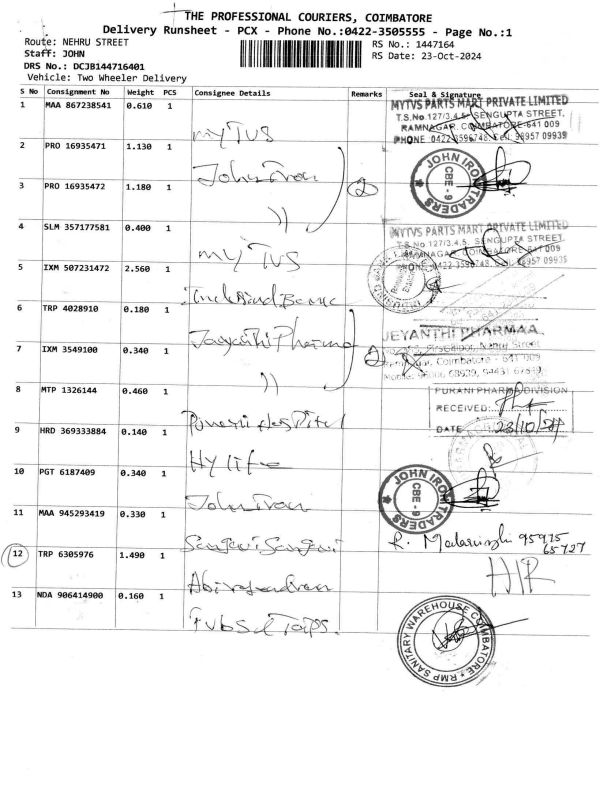 THE PROFESSIONAL COURIERS, COIMBATORE
Delivery Runsheet - PCX - Phone No.:0422-3505555 - Page No.:1
Route: NEHRU STREET
RS No.: 1447164
Staff: JOHN
RS Date: 23-Oct-2024
DRS No.: DCJB144716401
Vehicle: Two Wheeler Delivery
S No Consignment No Weight PCS Consignee Details Remarks Seal & Signature
1 MAA 867238541 0.610 1
MYTVS PARTS MART PRIVATE LIMITED
T.S.No.127/3,4,5, SENGUPTA STREET,
RAMNAGAR, COIMBATORE-641 009
PHONE 0422-3596748, Cell 98957 09935
myTVS
2 PRO 16935471 1.130 1
John Iron
JOHN IRON TRADERS
CBE - 9
3 PRO 16935472 1.180 1
2
))
4 SLM 357177581 0.400 1
MYTVS PARTS MART PRIVATE LIMITED
T.S.No.127/3,4,5, SENGUPTA STREET,
RAMNAGAR, COIMBATORE-641 009
PHONE 0422-3596748,
myTVS
5 IXM 507231472 2.560 1
IndusInd Bank
6 TRP 4028910 0.180 1
Jayanthi Pharma
JEYANTHI PHARMAA
Nehru Street
Coimbatore - 641 009
7 IXM 3549100 0.340 1
2
))
8 MTP 1326144 0.460 1
PURANI PHARMA DIVISION
RECEIVED:
DATE 23/10/24
Purani Hospital
9 HRD 369333884 0.140 1
Hylife
10 PGT 6187409 0.340 1
John Iron
JOHN IRON TRADERS
CBE - 9
11 MAA 945293419 0.330 1
Sangavi Sangavi
12 TRP 6305976 1.490 1
Abirajendran
H/R
13 NDA 906414900 0.160 1
RMP SANITARY WAREHOUSE COIMBATORE